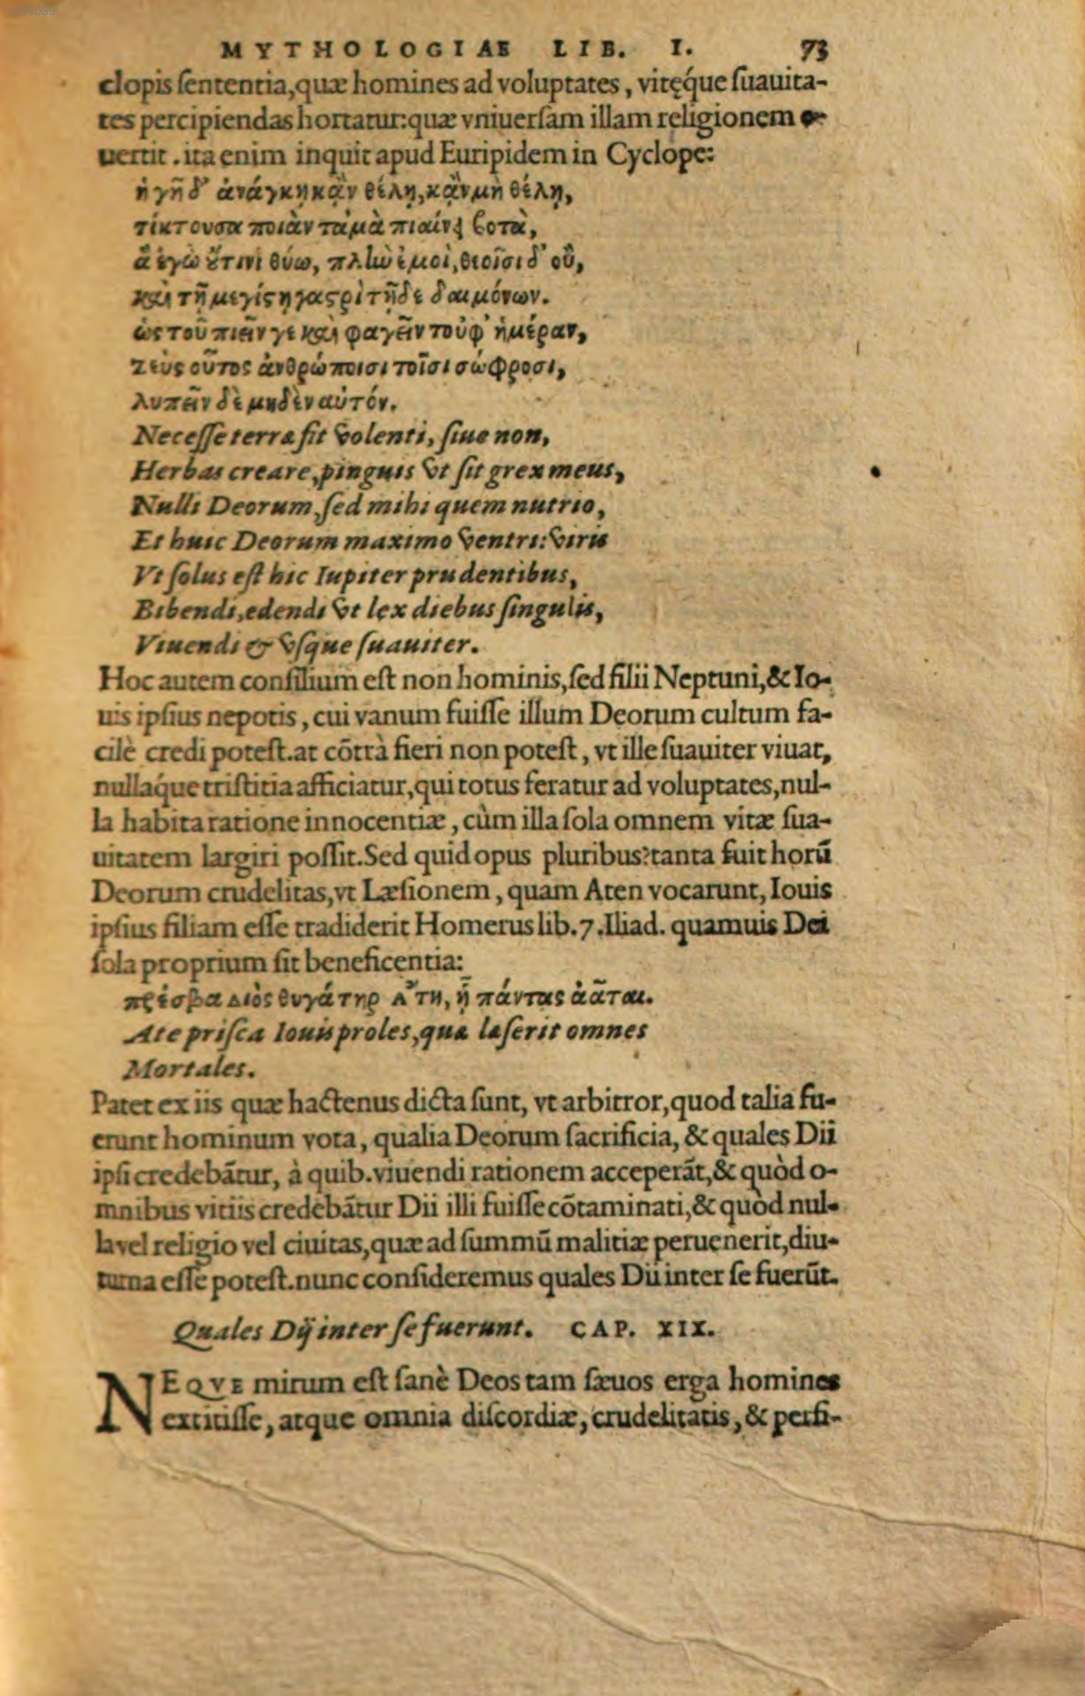 MYTHOLOGIAE LIB. I. 73
clopis ſententia,quæ homines ad voluptates, vitę́que ſuauita-
tes percipiendas hortatur:quæ vniuerſam illam religionem e-
uertit. ita enim inquit apud Euripidem in Cyclope:
ἡ γῆ δ᾽ ἀνάγκῃ κᾂν θέλῃ, κᾂν μὴ θέλῃ,
τίκτουσα ποιὰν τἀμὰ πιαίνει βοτὰ,
ἃ ἐγὼ οὔτινι θύω, πλὴν ἐμοὶ, θεοῖσι δ᾽ οὔ,
καὶ τῇ μεγίςῃ γαςρὶ τῇδε δαιμόνων.
ὡς τοῦ πιεῖν γε καὶ φαγεῖν τοὐφ᾽ ἡμέραν,
ζεὺς οὗτος ἀνθρώποισι τοῖσι σώφροσι,
λυπεῖν δὲ μηδὲν αὑτόν.
Neceſſe terra ſit volenti, ſiue non,
Herbas creare, pinguis vt ſit grex meus,
Nulli Deorum, ſed mihi quem nutrio,
Et huic Deorum maximo ventri: viris
Vt ſolus eſt hic Iupiter prudentibus,
Bibendi, edendi vt lex diebus ſingulis,
Viuendi & vſque ſuauiter.
Hoc autem conſilium eſt non hominis,ſed filii Neptuni,& Io-
uis ipſius nepotis, cui vanum fuiſſe illum Deorum cultum fa-
cilè credi poteſt.at cõtrà fieri non poteſt, vt ille ſuauiter viuat,
nullaq́ue triſtitia afficiatur,qui totus feratur ad voluptates,nul-
la habita ratione innocentiæ, cùm illa ſola omnem vitæ ſua-
uitatem largiri poſſit.Sed quid opus pluribus?tanta fuit horũ
Deorum crudelitas,vt Læſionem, quam Aten vocarunt, Iouis
ipſius filiam eſſe tradiderit Homerus lib.7.Iliad. quamuis Dei
ſola proprium ſit beneficentia:
πρέσβα Διὸς θυγάτηρ Ἄτη, ἣ πάντας ἀᾶται.
Ate priſca Iouis proles, quæ læſerit omnes
Mortales.
Patet ex iis quæ hactenus dicta ſunt, vt arbitror,quod talia fu-
erunt hominum vota, qualia Deorum ſacrificia, & quales Dii
ipſi credebãtur, à quib.viuendi rationem acceperãt,& quòd o-
mnibus vitiis credebãtur Dii illi fuiſſe cõtaminati,& quòd nul-
la vel religio vel ciuitas,quæ ad ſummũ malitiæ peruenerit,diu-
turna eſſe poteſt.nunc conſideremus quales Dii inter ſe fuerũt.
Quales Dij inter ſe fuerunt. CAP. XIX.
NEQVE mirum eſt ſanè Deos tam ſæuos erga homines
extitiſſe, atque omnia diſcordiæ, crudelitatis, & perfi-